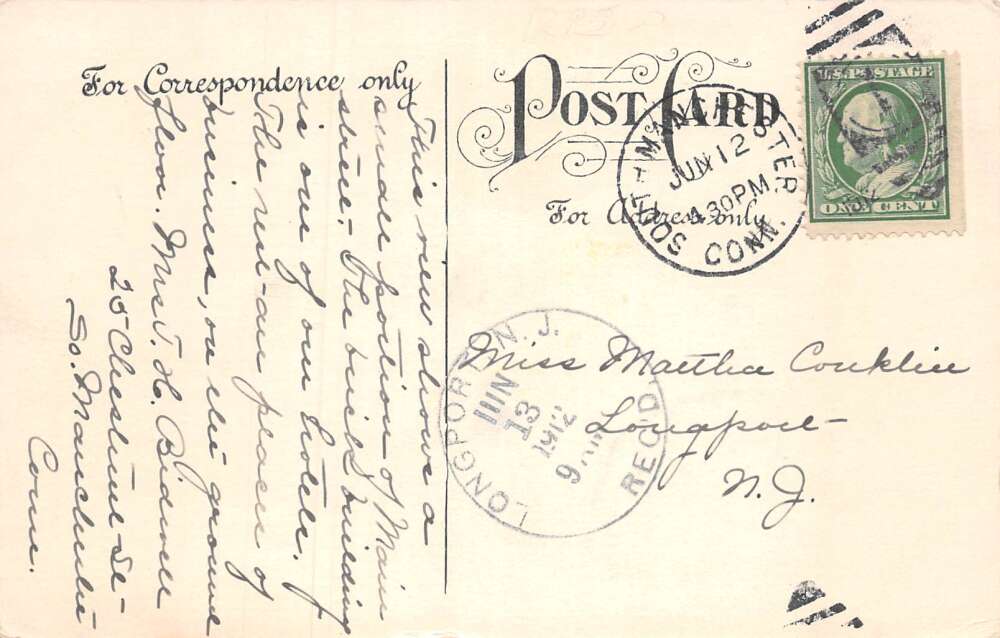 For Correspondence only
POST CARD
For Address only
U.S. POSTAGE
ONE CENT
SOUTH MANCHESTER
JUN 12
4.30PM
CONN.
LONGPORT N.J.
JUN
13
1912
9
REC'D
Miss Martha Conklin
Longport
N.J.
This view shows a
small portion of Main
street. The brick building
is one of our hotels.
The is our place of
business, on the ground
floor. Mrs. T. H. Bidwell
25 Chestnut St
So. Manchester
Conn.